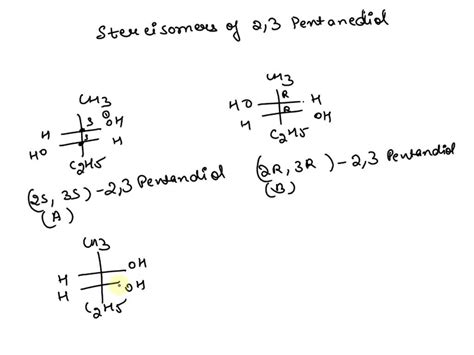 Stereisomers of 2,3 Pentanediol
CH3
H S OH
HO S H
C2H5
(2S, 3S) - 2,3 Pentandiol
(A)
CH3
HO R H
H R OH
C2H5
(2R, 3R) - 2,3 Pentandiol
(B)
CH3
H OH
H OH
C2H5